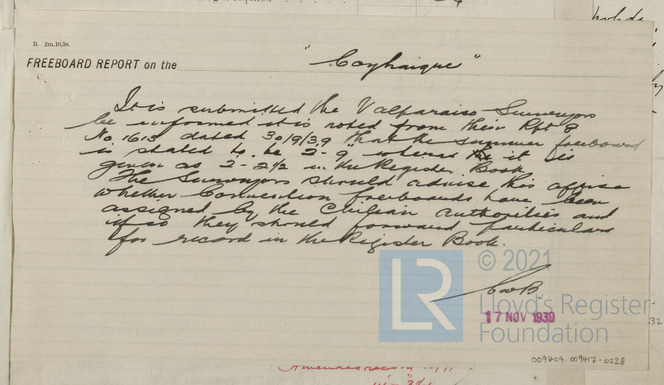 B. 2m,10,38.
FREEBOARD REPORT on the "Coyhaique"
It is submitted the Valparaiso Surveyors
be informed it is noted from their Rpt 8
No 1613 dated 30/9/39 that the summer freeboard
is stated to be 2-9 whereas it is
given as 2-2½ in the Register Book
The Surveyors should advise this office
whether Convention freeboards have been
assigned by the Chilean authorities and
if so they should forward particulars
for record in the Register Book.
17 NOV 1939
LR
© 2021
Lloyd's Register
Foundation
009404-009417-0228